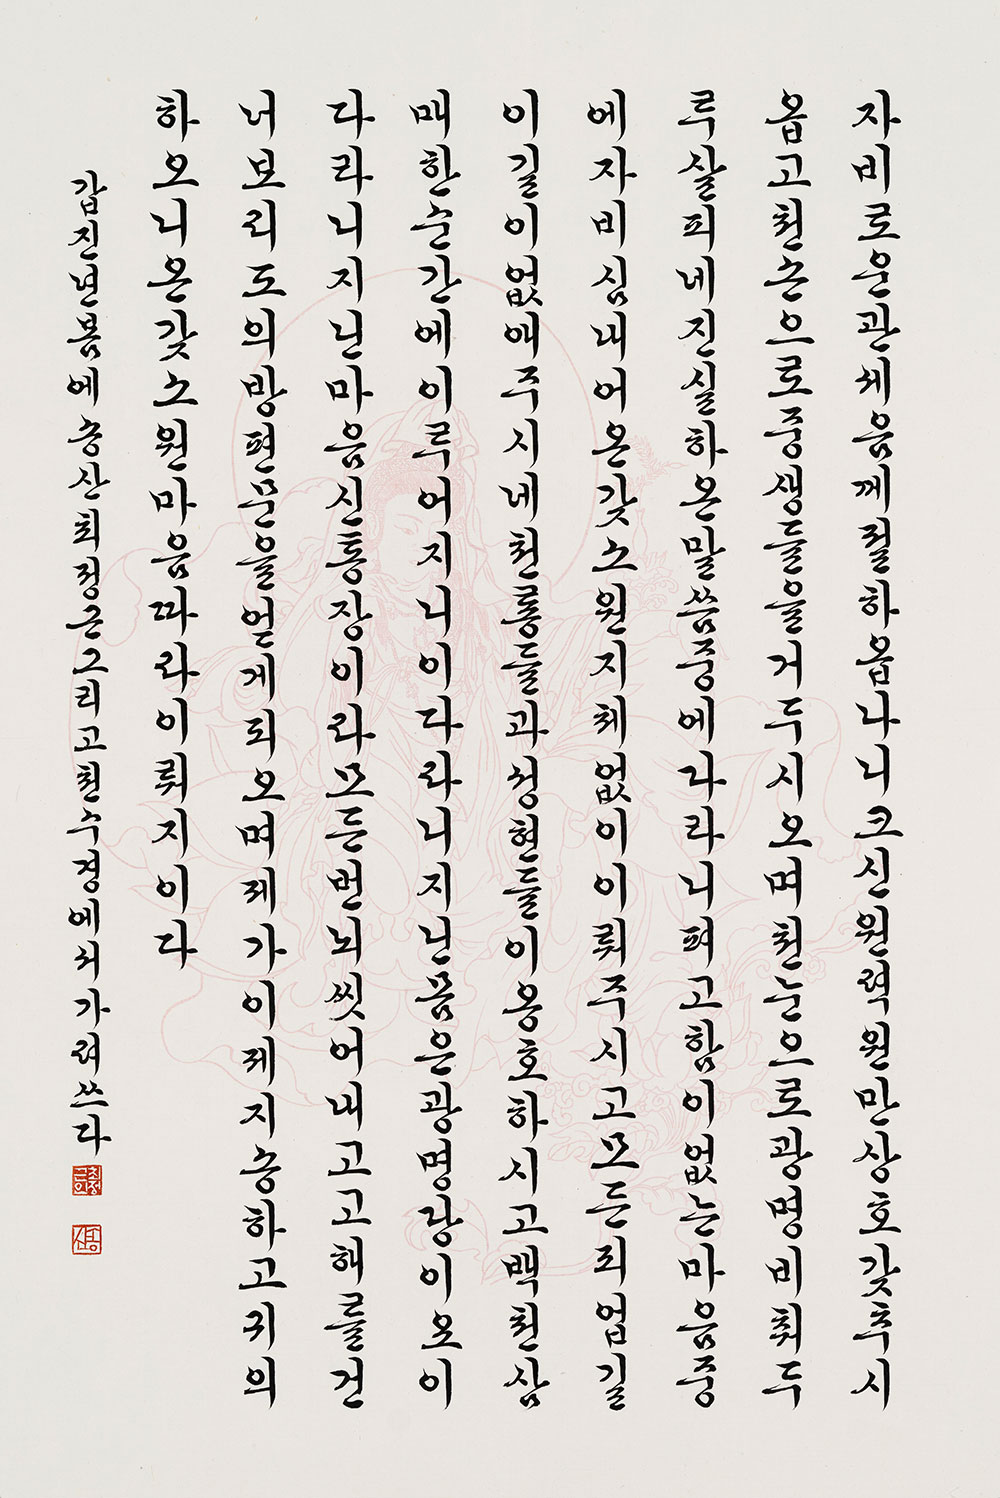 자비로운관세음께절하옵나니크신원력원만상호갖추시
옵고천손으로중생들을거두시오며천눈으로광명비취두
루살피네진실하온말씀중에다라니펴고함이없는마음중
에자비심내어온갖소원지체없이이뤄주시고모든죄업길
이길이없애주시네천룡들과성현들이옹호하시고백천삼
매한순간에이루어지니이다라니지닌몸은광명당이오이
다라니지닌마음신통장이라모든번뇌씻어내고고해를건
너보리도의방편문을얻게되오며제가이제지송하고귀의
하오니온갖소원마음따라이뤄지이다
갑진년봄에송산최정근그리고천수경에서가려쓰다